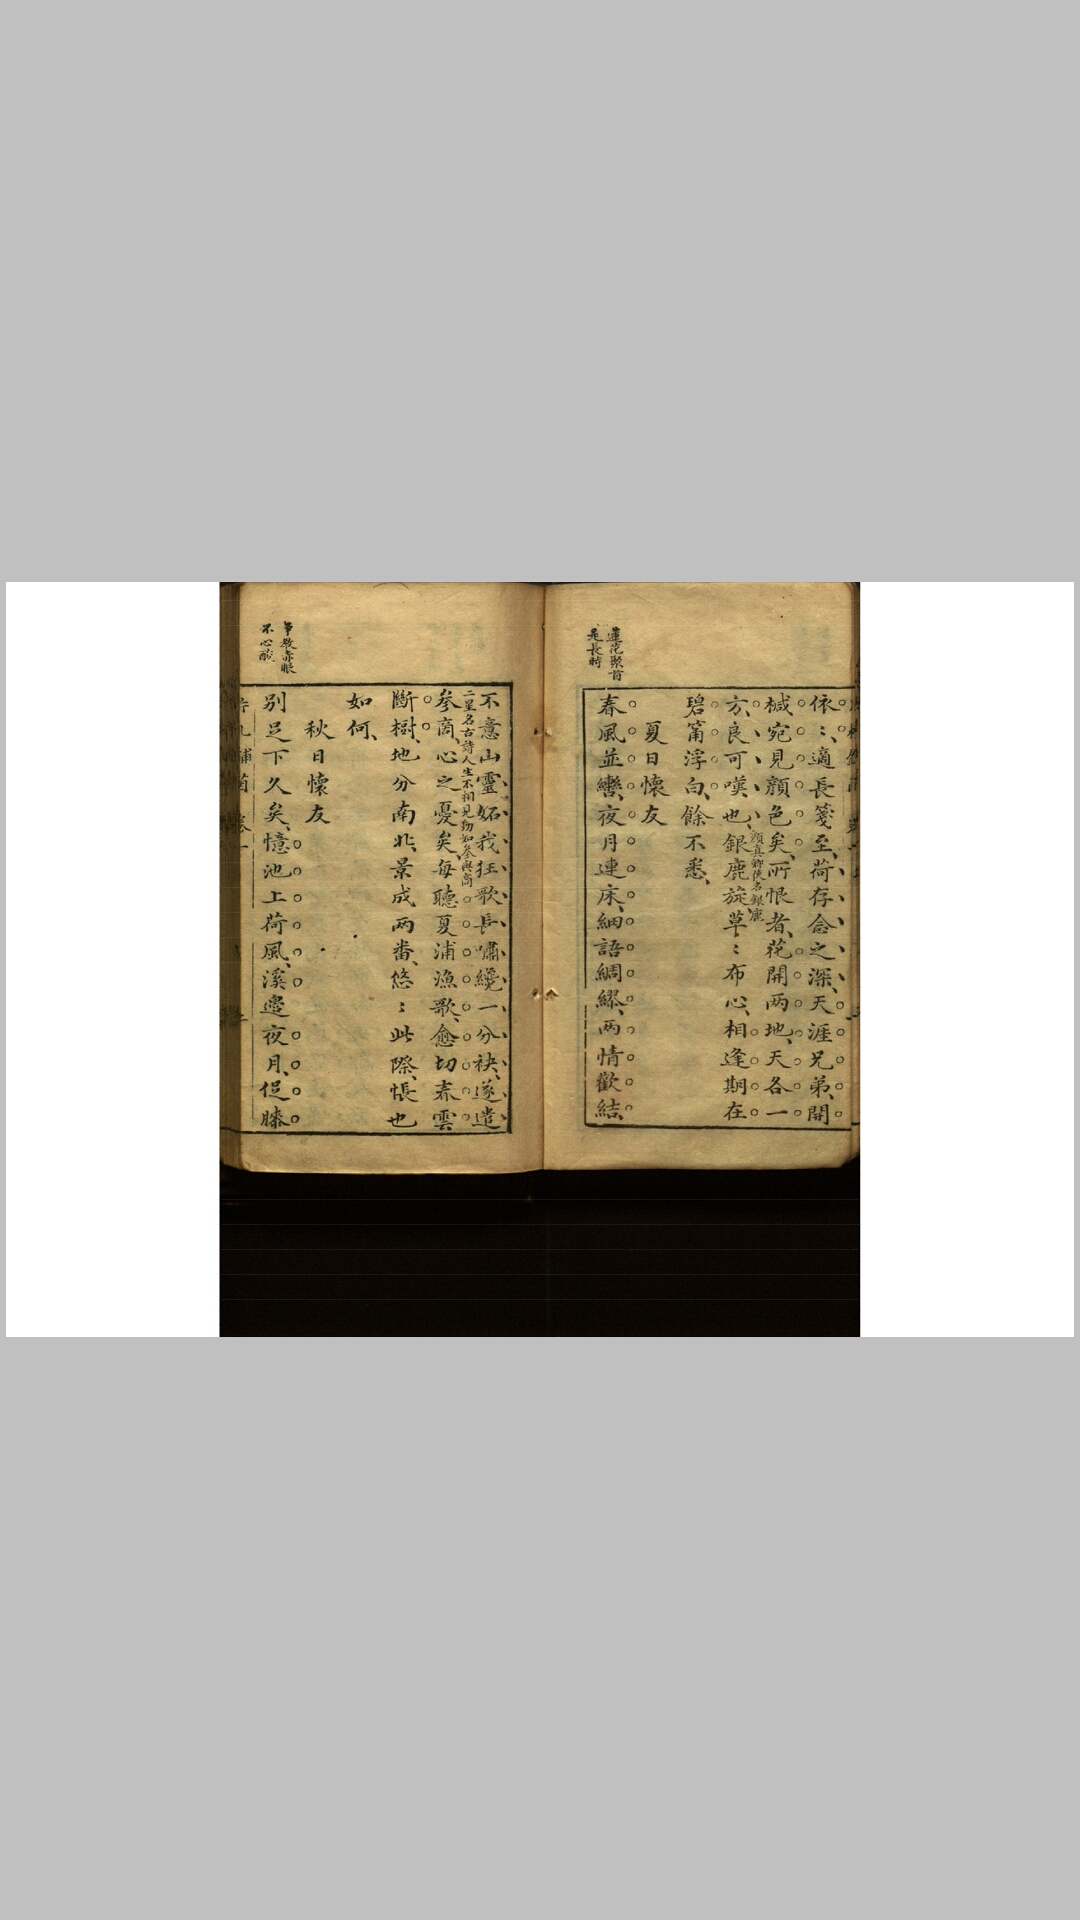 蓮花聚首
是長時
依〻適長箋至、荷存念之深、天涯兄弟、開
椷宛見顏色矣、所恨者、花開两地、天各一
方、良可嘆也、銀鹿旋、草〻布心、相逢期在
顏真卿侍名銀鹿
碧筩浮白、餘不悉、
夏日懷友
春風並轡、夜月連床、細語綢繆、两情歡結、
不意山靈妬我狂歌長嘯、纔一分袂、遂遣
二星名古詩人生不相見動如參與商
參商、心之憂矣、每聽夏浦漁歌、愈切春雲
斷樹、地分南北、景成两番、悠〻此際、悵也
如何、
秋日懷友
爭教赤眼
不心酸
別足下久矣、憶池上荷風、溪邊夜月、促膝